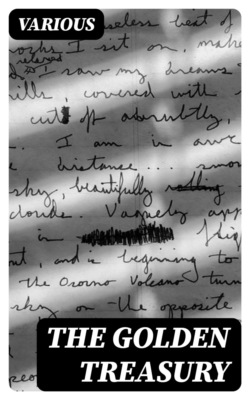 VARIOUS
beat of
I sit on, make
relaxed
I saw my dreams
ills covered with
cut off abruptly,
I am in awe
distance.... smo
sky, beautifully rolling
clouds. Vaguely app
in ship
out, and is beginning to
the Osorno Volcano turn
sky on the opposite
THE GOLDEN
TREASURY